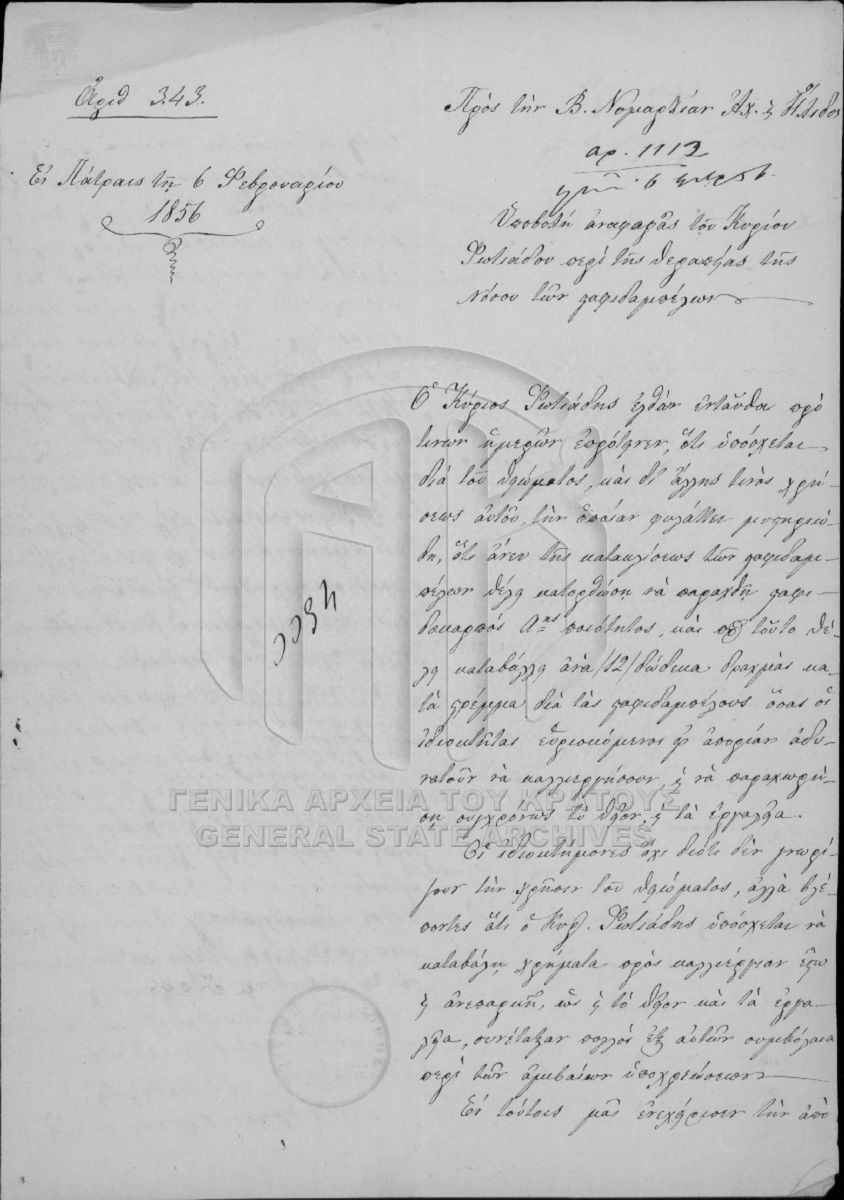 Ἀριθ 343.
Ἐν Πάτραις τῇ 6 Φεβρουαρίου
1856
Πρὸς τὴν Β. Νομαρχίαν Ἀχ. ῃ Ἤλιδος
αρ. 1112
6
Ὑποβολὴ ἀναφορᾶς τοῦ Κυρίου
Φωτιάδου περὶ τῆς θεραπείας τῆς
νόσου τῶν σταφιδαμπέλων
Ὁ Κύριος Φωτιάδης ἐλθὼν ἐνταῦθα πρό
τινων ἡμερῶν ἐπρότεινεν, ὅτι ὑπόσχεται
διὰ τοῦ θειώματος, καὶ δι' ἄλλης τινὸς χρή-
σεως αὐτοῦ, τὴν ὁποίαν φυλάττει μυστηριώ-
δη, ὅτι ἄνευ τῆς κατακλίσεως τῶν σταφιδαμ-
πέλων θέλει κατορθώσῃ νὰ παραχθῇ σταφι-
δοκαρπὸς Αης ποιότητος, καὶ πρὸς τοῦτο θέ-
λει καταβάλλῃ ἀνὰ /12/ δώδεκα δραχμὰς κα-
τὰ στρέμμα διὰ τὰς σταφιδαμπέλους ὅσας οἱ
ἰδιοκτῆται εὑρισκόμενοι εἰς ἀπορίαν ἀδυ-
νατοῦν νὰ καλλιεργήσουν, ῃ νὰ παραχωρή-
σῃ συγχρόνως τὸ θεῖον, ῃ τὰ ἐργαλεῖα.
Οἱ ἰδιοκτήμονες ὄχι διότι δὲν γνωρί-
ζουν τὴν χρῆσιν τοῦ θειώματος, ἀλλὰ βλέ-
ποντες ὅτι ὁ Κύρ. Φωτιάδης ὑπόσχεται νὰ
καταβάλῃ χρήματα πρὸς καλλιέργειαν ἔστω
ῃ ἀνεπαρκῆ, ὡς ῃ τὸ θεῖον καὶ τὰ ἐργα-
λεῖα, συνέταξαν πολλοὶ ἐξ αὐτῶν συμβόλαια
περὶ τῶν ἀμοιβαίων ὑποχρεώσεων
Ἐν τούτοις μᾶς ἐνεχείρισεν τὴν ἀπὸ
ΓΕΝΙΚΑ ΑΡΧΕΙΑ ΤΟΥ ΚΡΑΤΟΥΣ
GENERAL STATE ARCHIVES